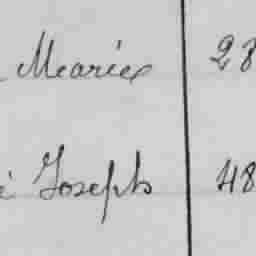 Marie 28
Joseph 48